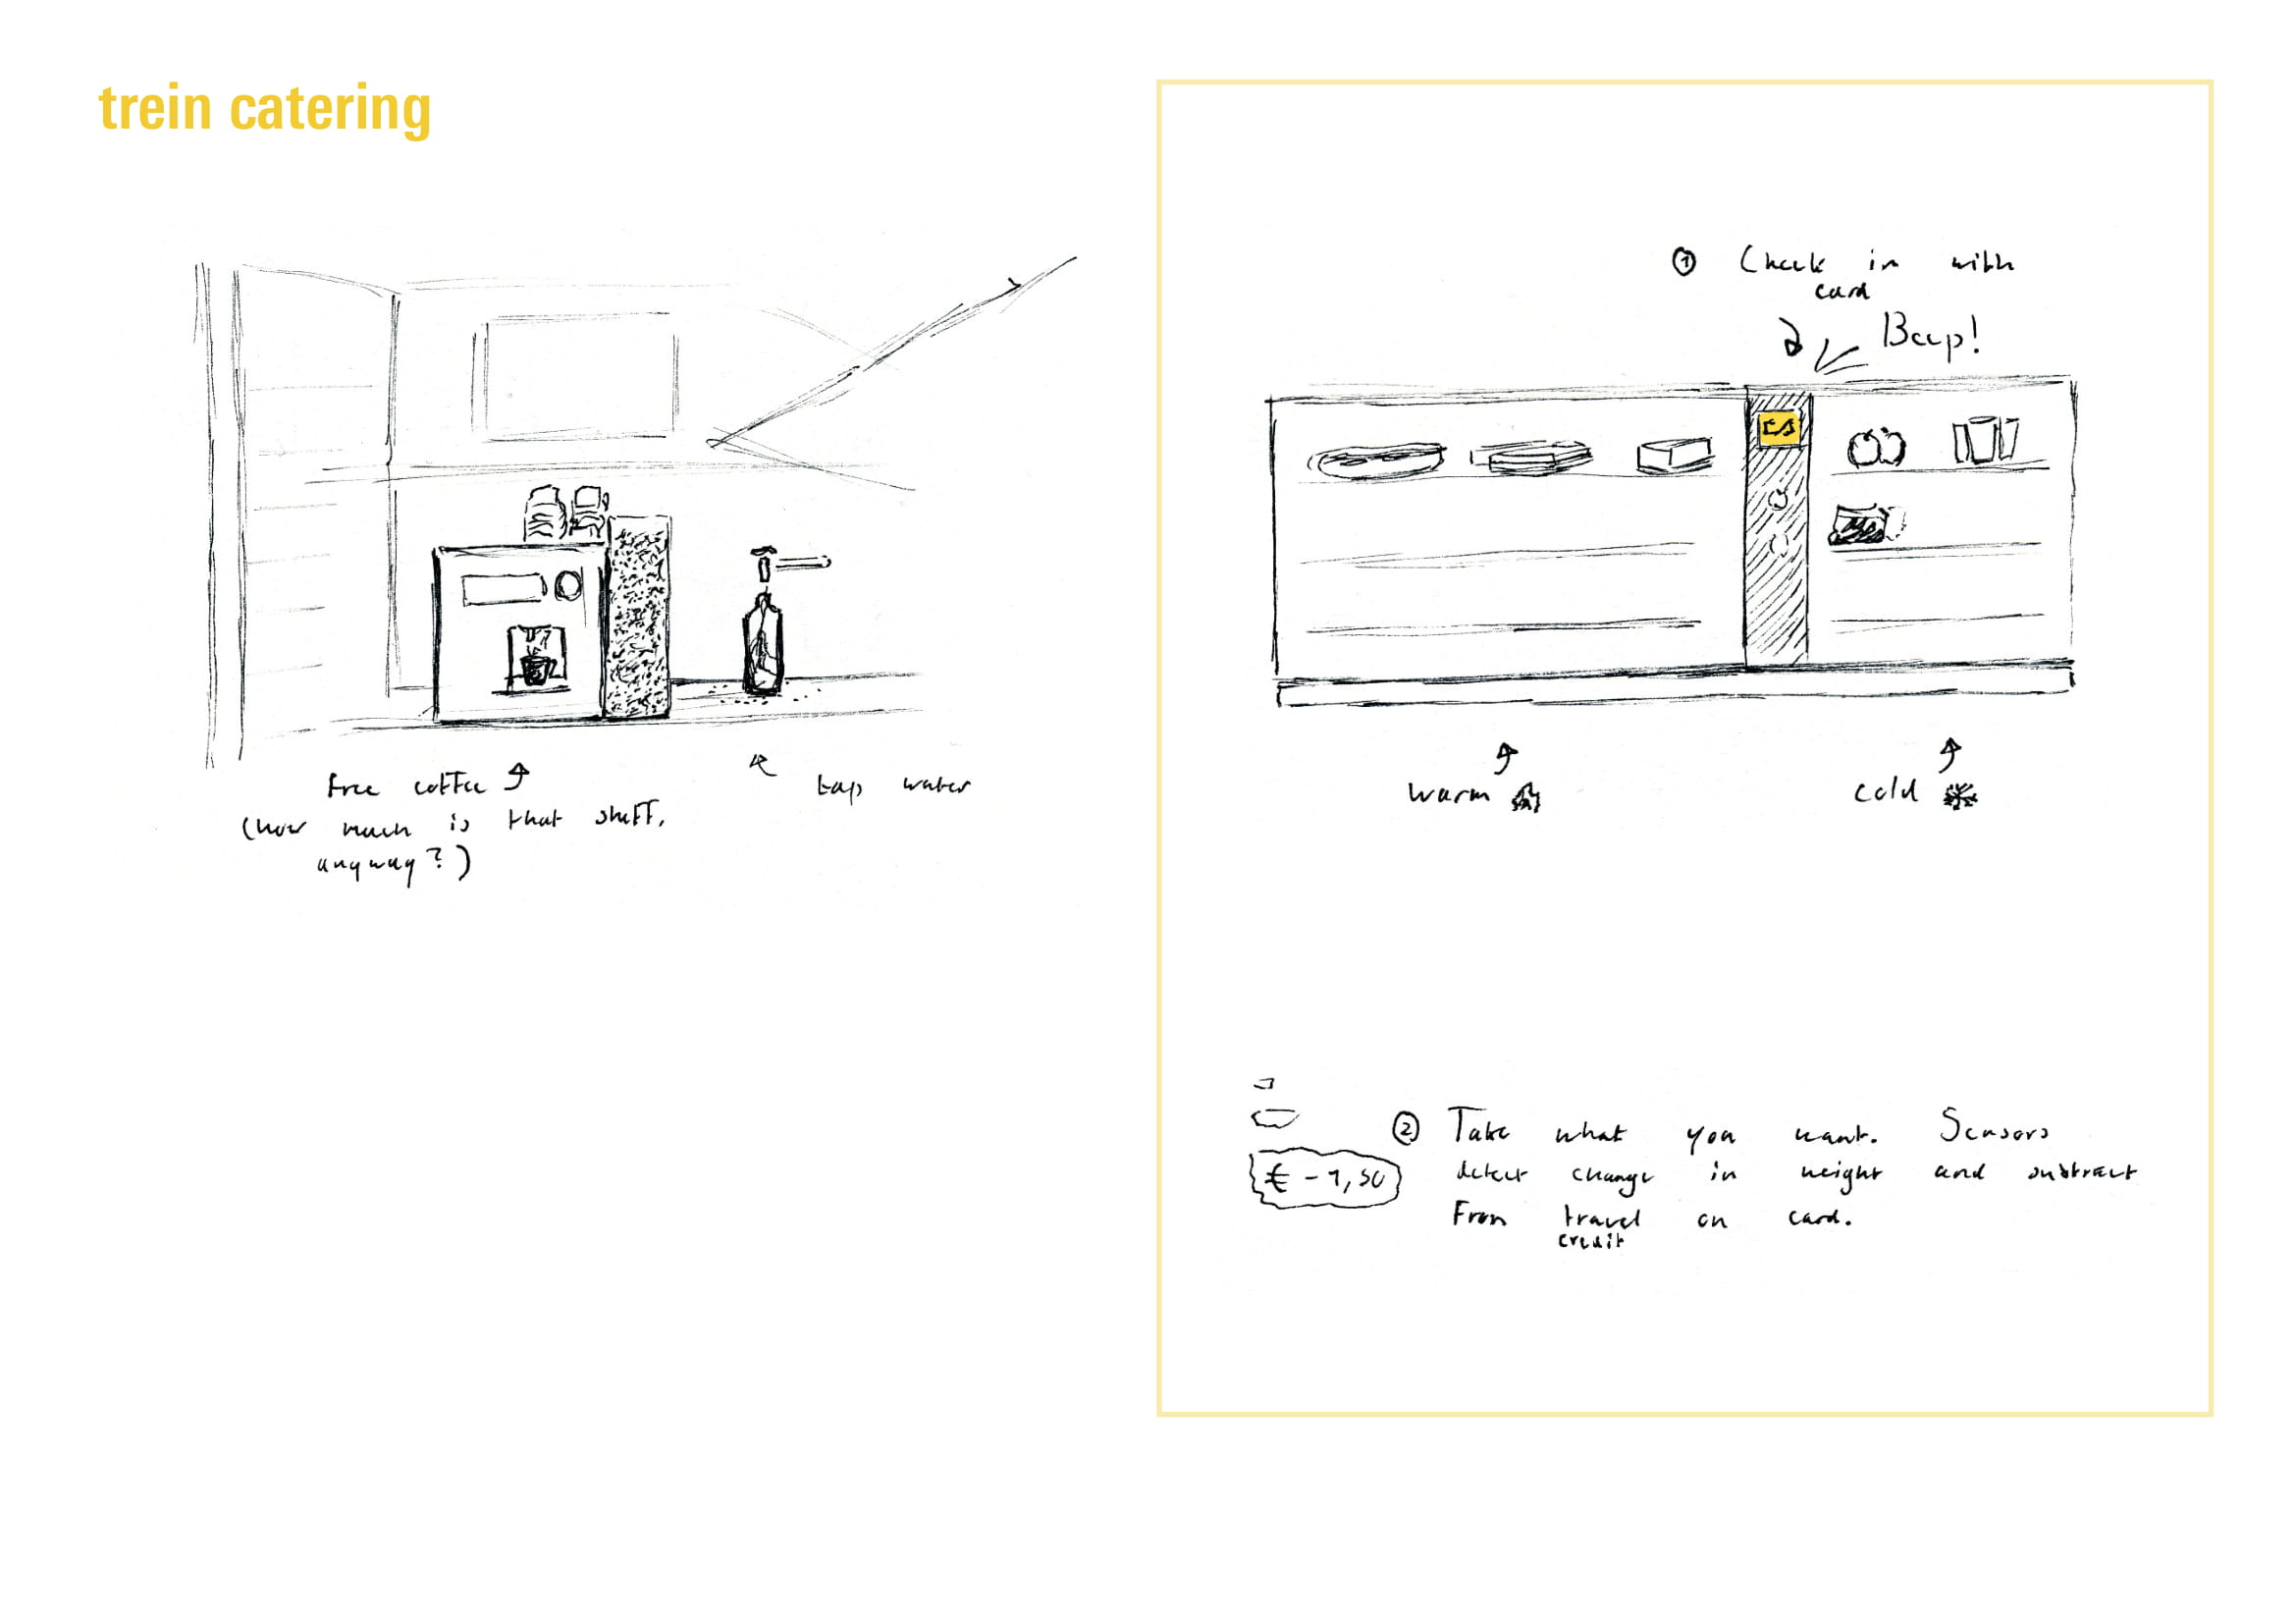 trein catering
Free coffee
(how much is that stuff,
anyway?)
tap water
① Check in with
card
Beep!
warm
cold
② Take what you want. Sensors
detect change in weight and subtract
From travel on card.
credit
€ -1,50